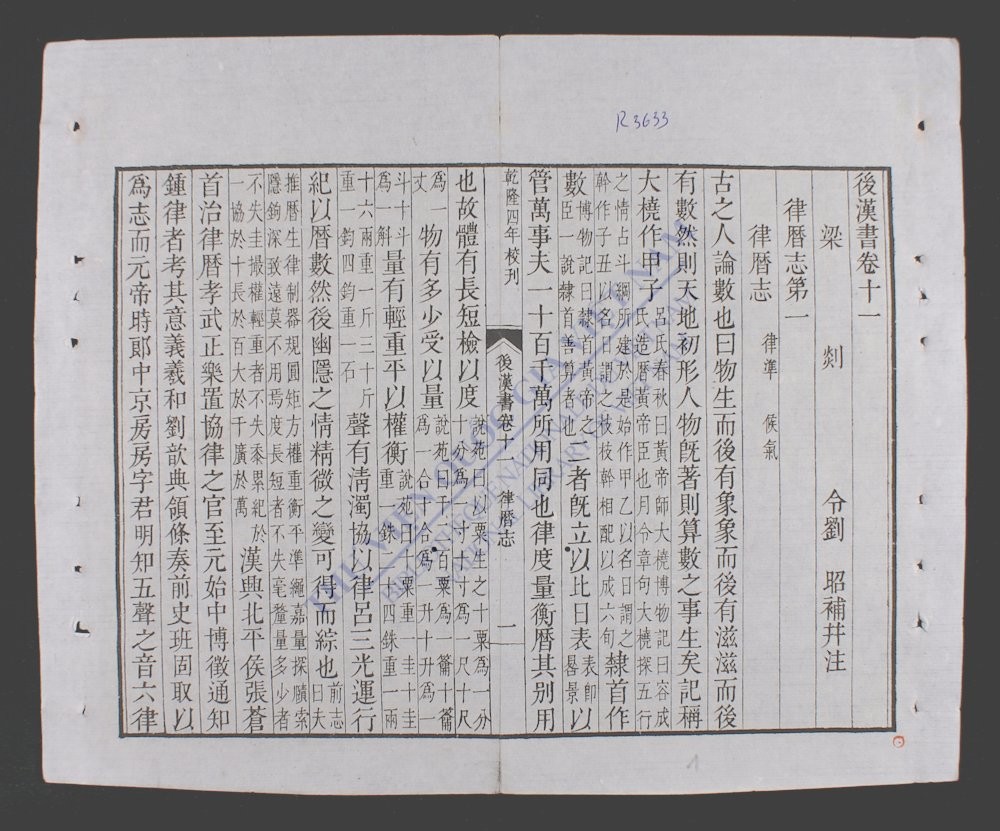 R 3633
後漢書卷十一
梁剡令劉昭補幷注
律暦志第一
律暦志 律準 候氣
古之人論數也曰物生而後有象象而後有滋滋而後
有數然則天地初形人物旣著則算數之事生矣記稱
大橈作甲子呂氏春秋曰黃帝師大橈博物記曰容成氏造暦黃帝臣也月令章句大橈探五行
之情占斗綱所建於是始作甲乙以名日謂之幹作子丑以名日謂之枝枝幹相配以成六旬隸首作
數博物記曰隸首黃帝之臣一說隸首善算者也二者旣立以比日表表卽晷景以
管萬事夫一十百千萬所用同也律度量衡暦其别用
乾隆四年校刊
後漢書卷十一 律暦志 一
也故體有長短檢以度說苑曰以粟生之十粟爲一分十分爲一寸十寸爲一尺十尺
爲一丈物有多少受以量說苑曰千二百粟爲一籥十籥爲一合十合爲一升十升爲一
斗十斗爲一斛量有輕重平以權衡說苑曰十粟重一圭十圭重一銖二十四銖重一兩
十六兩重一斤三十斤重一鈞四鈞重一石聲有清濁協以律呂三光運行
紀以暦數然後幽隱之情精微之變可得而綜也前志曰夫
推暦生律制器規圓矩方權重衡平準繩嘉量探賾索隱鉤深致遠莫不用焉度長短者不失毫釐量多少者
不失圭撮權輕重者不失黍累紀於一協於十長於百大於千廣於萬漢興北平侯張蒼
首治律暦孝武正樂置協律之官至元始中博徵通知
鍾律者考其意義羲和劉歆典領條奏前史班固取以
爲志而元帝時郎中京房房字君明知五聲之音六律
1